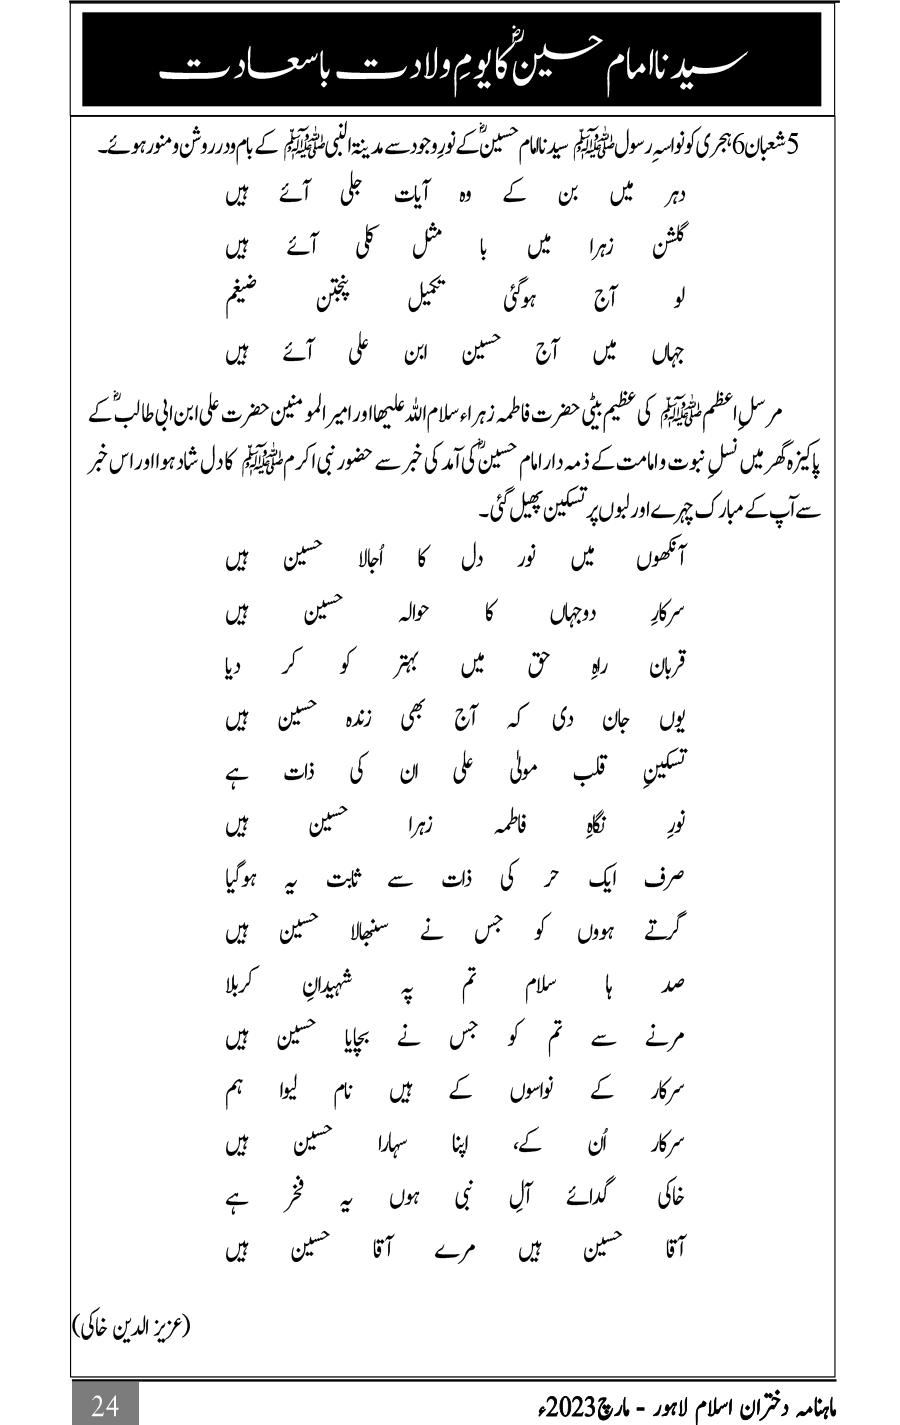 سیدنا امام حسینؓ کا یومِ ولادت باسعادت
5 شعبان 6 ہجری کو نواسہِ رسول ﷺ سیدنا امام حسینؓ کے نورِ وجود سے مدینۃ النبی ﷺ کے بام و در روشن و منور ہوئے۔
دہر میں بن کے وہ آیات جلی آئے ہیں
گلشن زہرا میں با مثل کلی آئے ہیں
لو آج ہوگئی تکمیل پنجتن ضیغم
جہاں میں آج حسین ابن علی آئے ہیں
مرسلِ اعظم ﷺ کی عظیم بیٹی حضرت فاطمہ زہراء سلام اللہ علیھا اور امیر المومنین حضرت علی ابن ابی طالبؓ کے
پاکیزہ گھر میں نسلِ نبوت و امامت کے ذمہ دار امام حسینؓ کی آمد کی خبر سے حضور نبی اکرم ﷺ کا دل شاد ہوا اور اس خبر
سے آپ کے مبارک چہرے اور لبوں پر تسکین پھیل گئی۔
آنکھوں میں نور دل کا اُجالا حسین ہیں
سرکارِ دوجہاں کا حوالہ حسین ہیں
قربان راہِ حق میں بہتر کو کر دیا
یوں جان دی کہ آج بھی زندہ حسین ہیں
تسکینِ قلب مولیٰ علی ان کی ذات ہے
نورِ نگاہِ فاطمہ زہرا حسین ہیں
صرف ایک حر کی ذات سے ثابت یہ ہوگیا
گرتے ہووں کو جس نے سنبھالا حسین ہیں
صد ہا سلام تم پہ شہیدانِ کربلا
مرنے سے تم کو جس نے بچایا حسین ہیں
سرکار کے نواسوں کے ہیں نام لیوا ہم
سرکار اُن کے، اپنا سہارا حسین ہیں
خاکی گدائے آلِ نبی ہوں یہ فخر ہے
آقا حسین ہیں مرے آقا حسین ہیں
(عزیز الدین خاکی)
ماہنامہ دختران اسلام لاہور - مارچ 2023ء
24